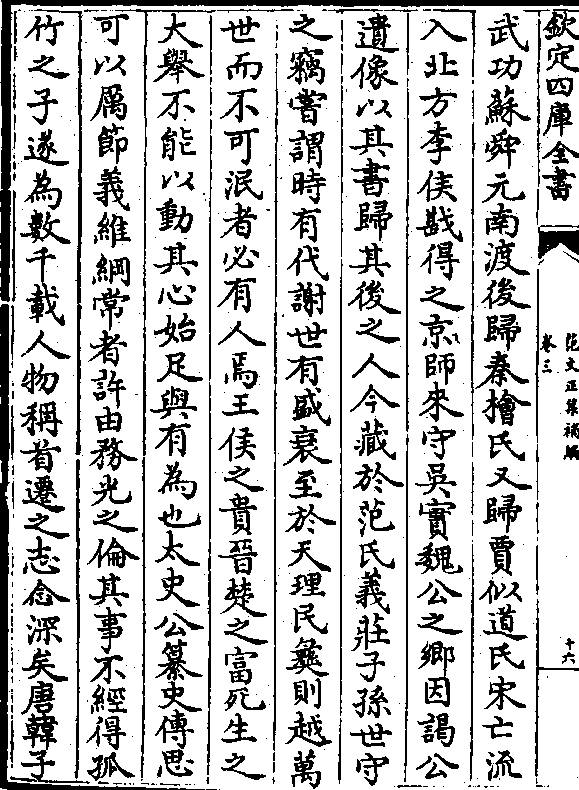 欽定四庫全書
范文正集補編
卷三
十六
武功蘇舜元南渡後歸秦檜氏又歸賈似道氏宋亡流
入北方李侯戡得之京師來守吳實魏公之鄉因謁公
遺像以其書歸其後之人今藏於范氏義莊子孫世守
之竊嘗謂時有代謝世有盛衰至於天理民彝則越萬
世而不可泯者必有人焉王侯之貴晉楚之富死生之
大舉不能以動其心始足與有為也太史公纂史傳思
可以厲節義維綱常者許由務光之倫其事不經得孤
竹之子遂為數千載人物稱首遷之志念深矣唐韓子